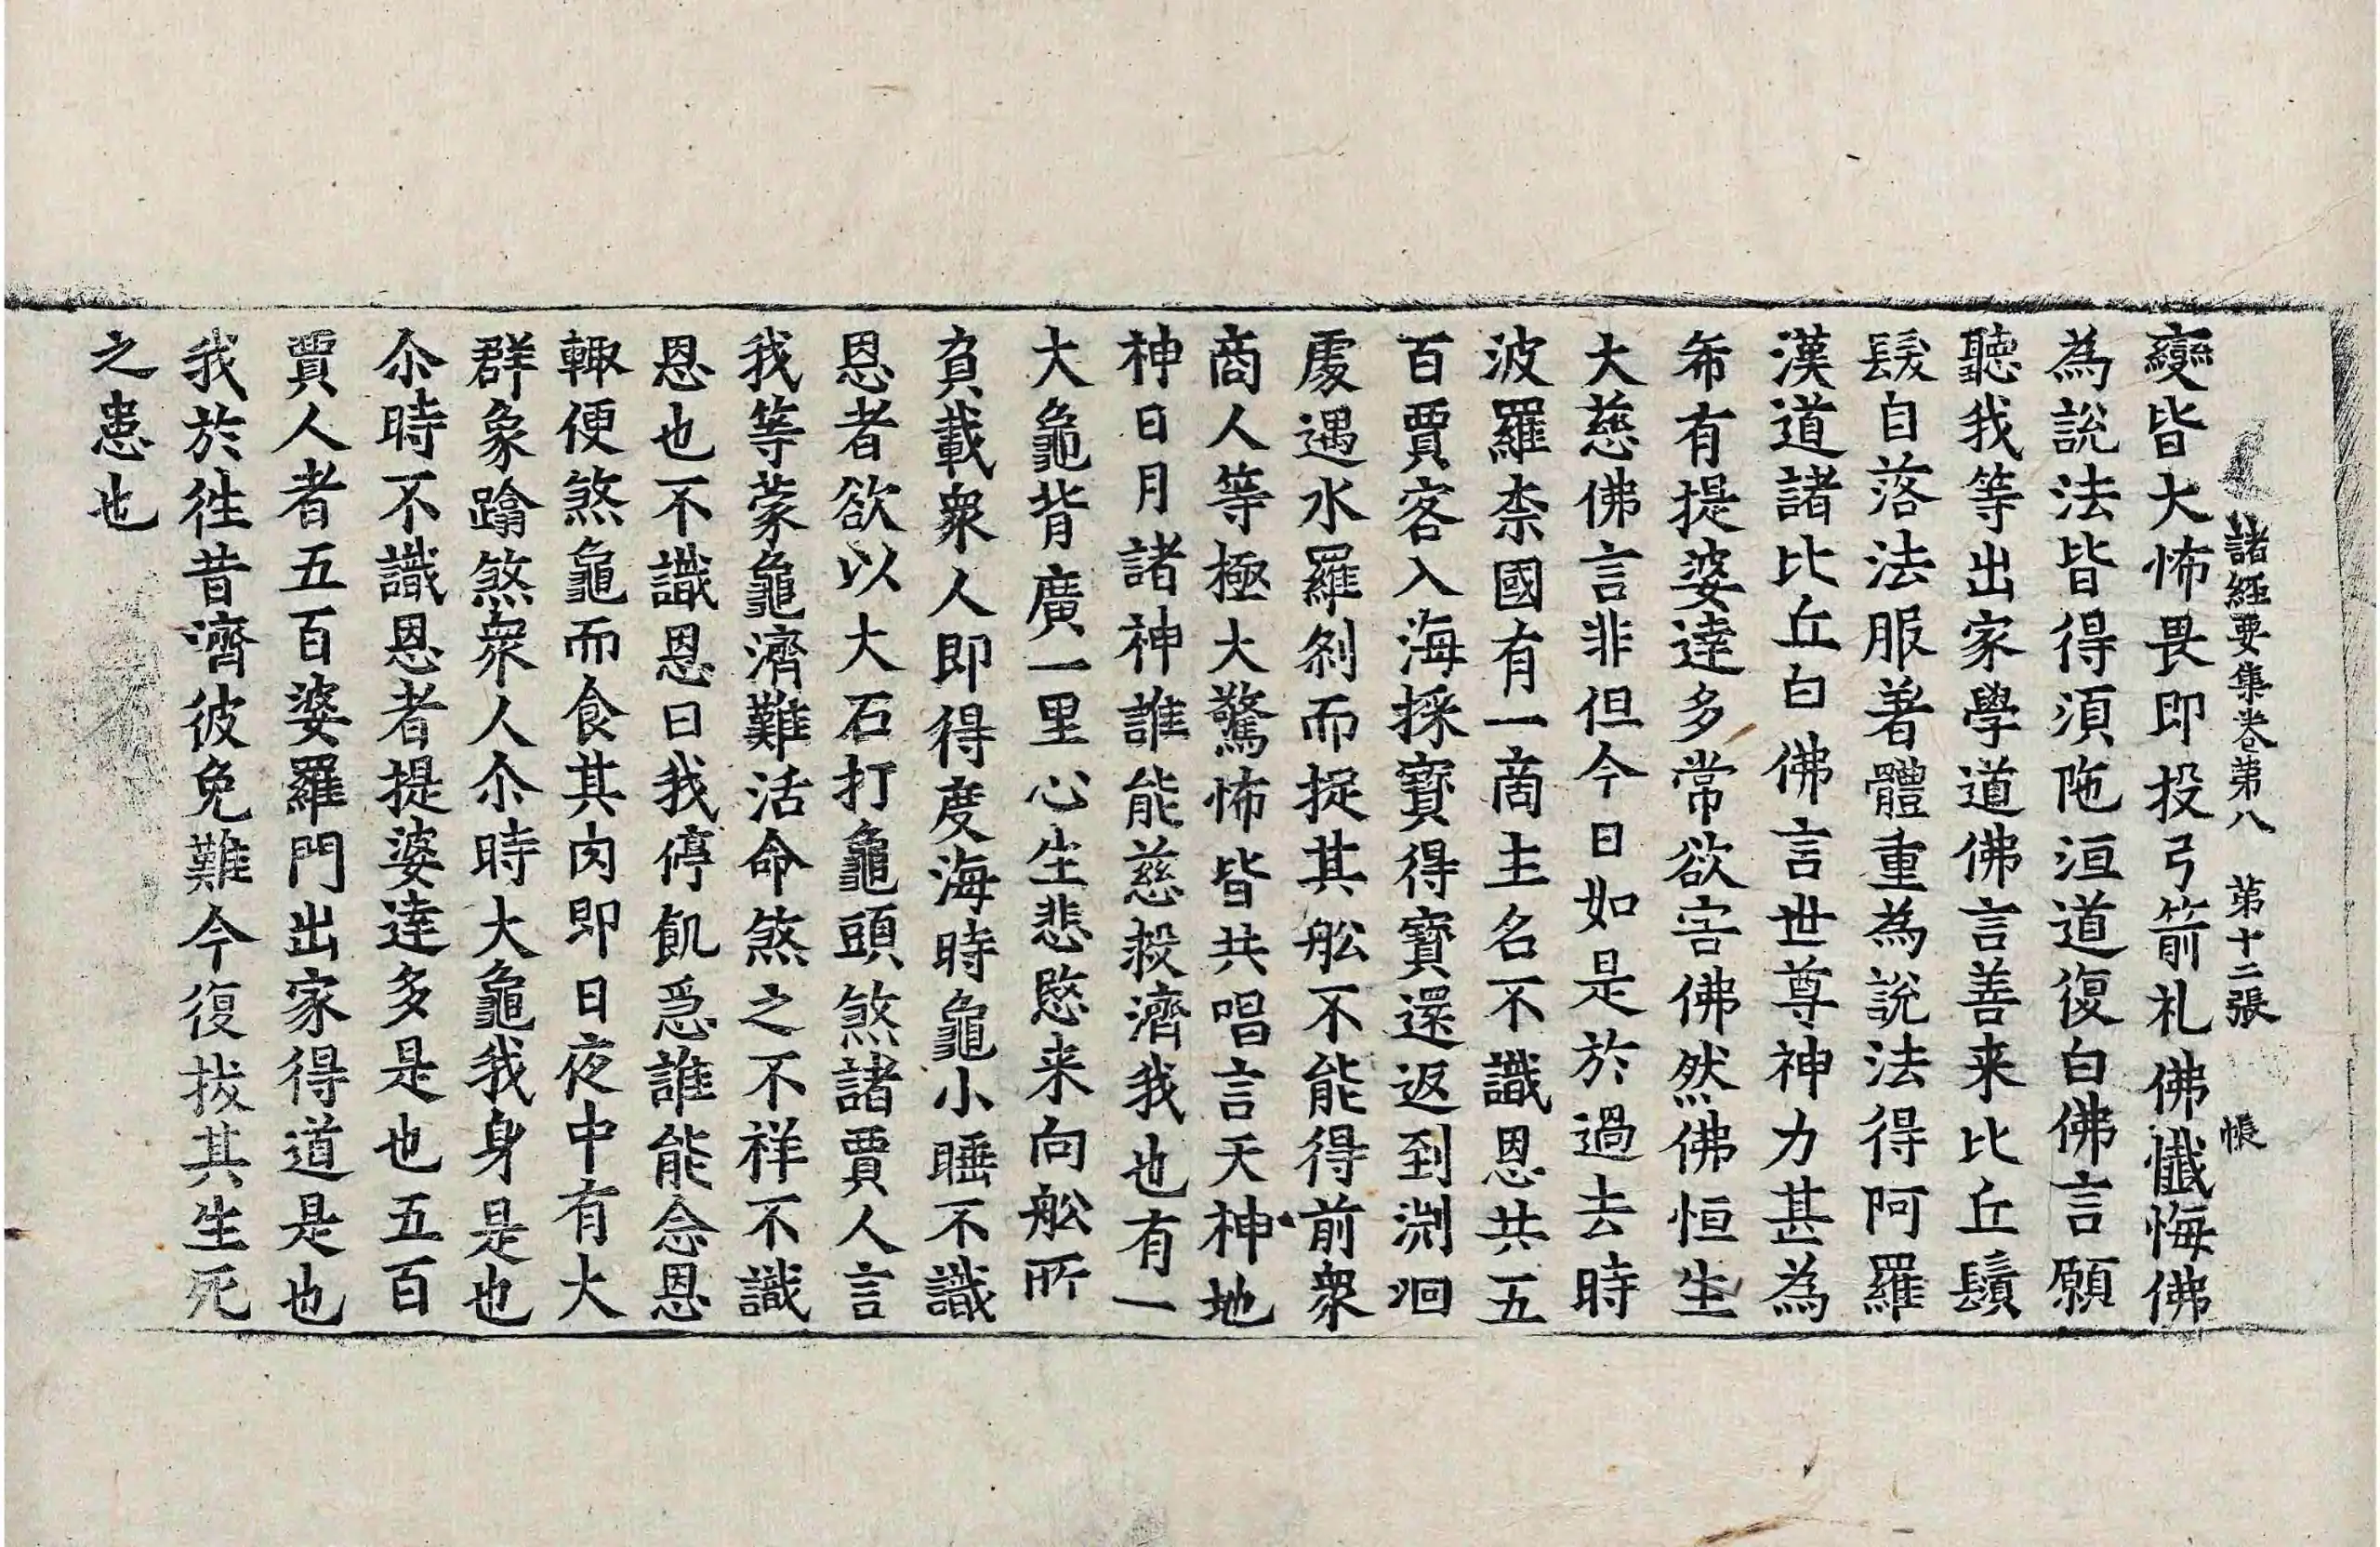 諸經要集卷苐八 苐十二張 帳
變皆大怖畏即投弓箭礼佛懺悔佛
為說法皆得湏陁洹道復白佛言願
聽我等出家學道佛言善来比丘鬚
髮自落法服著體重為說法得阿羅
漢道諸比丘白佛言世尊神力甚為
希有提婆達多常欲害佛然佛恒生
大慈佛言非但今日如是於過去時
波羅柰國有一啇主名不識恩共五
百賈客入海採寶得寶還返到渕洄
處遇水羅刹而捉其舩不能得前衆
商人等極大驚怖皆共唱言天神地
神日月諸神誰能慈救濟我也有一
大龜背廣一里心生悲愍来向舩所
負載衆人即得度海時龜小睡不識
恩者欲以大石打龜頭煞諸賈人言
我等蒙龜濟難活命煞之不祥不識
恩也不識恩曰我停飢急誰能念恩
輙便煞龜而食其肉即日夜中有大
群象蹹煞衆人尒時大龜我身是也
尒時不識恩者提婆達多是也五百
賈人者五百婆羅門出家得道是也
我於往昔濟彼免難今復拔其生死
之患也